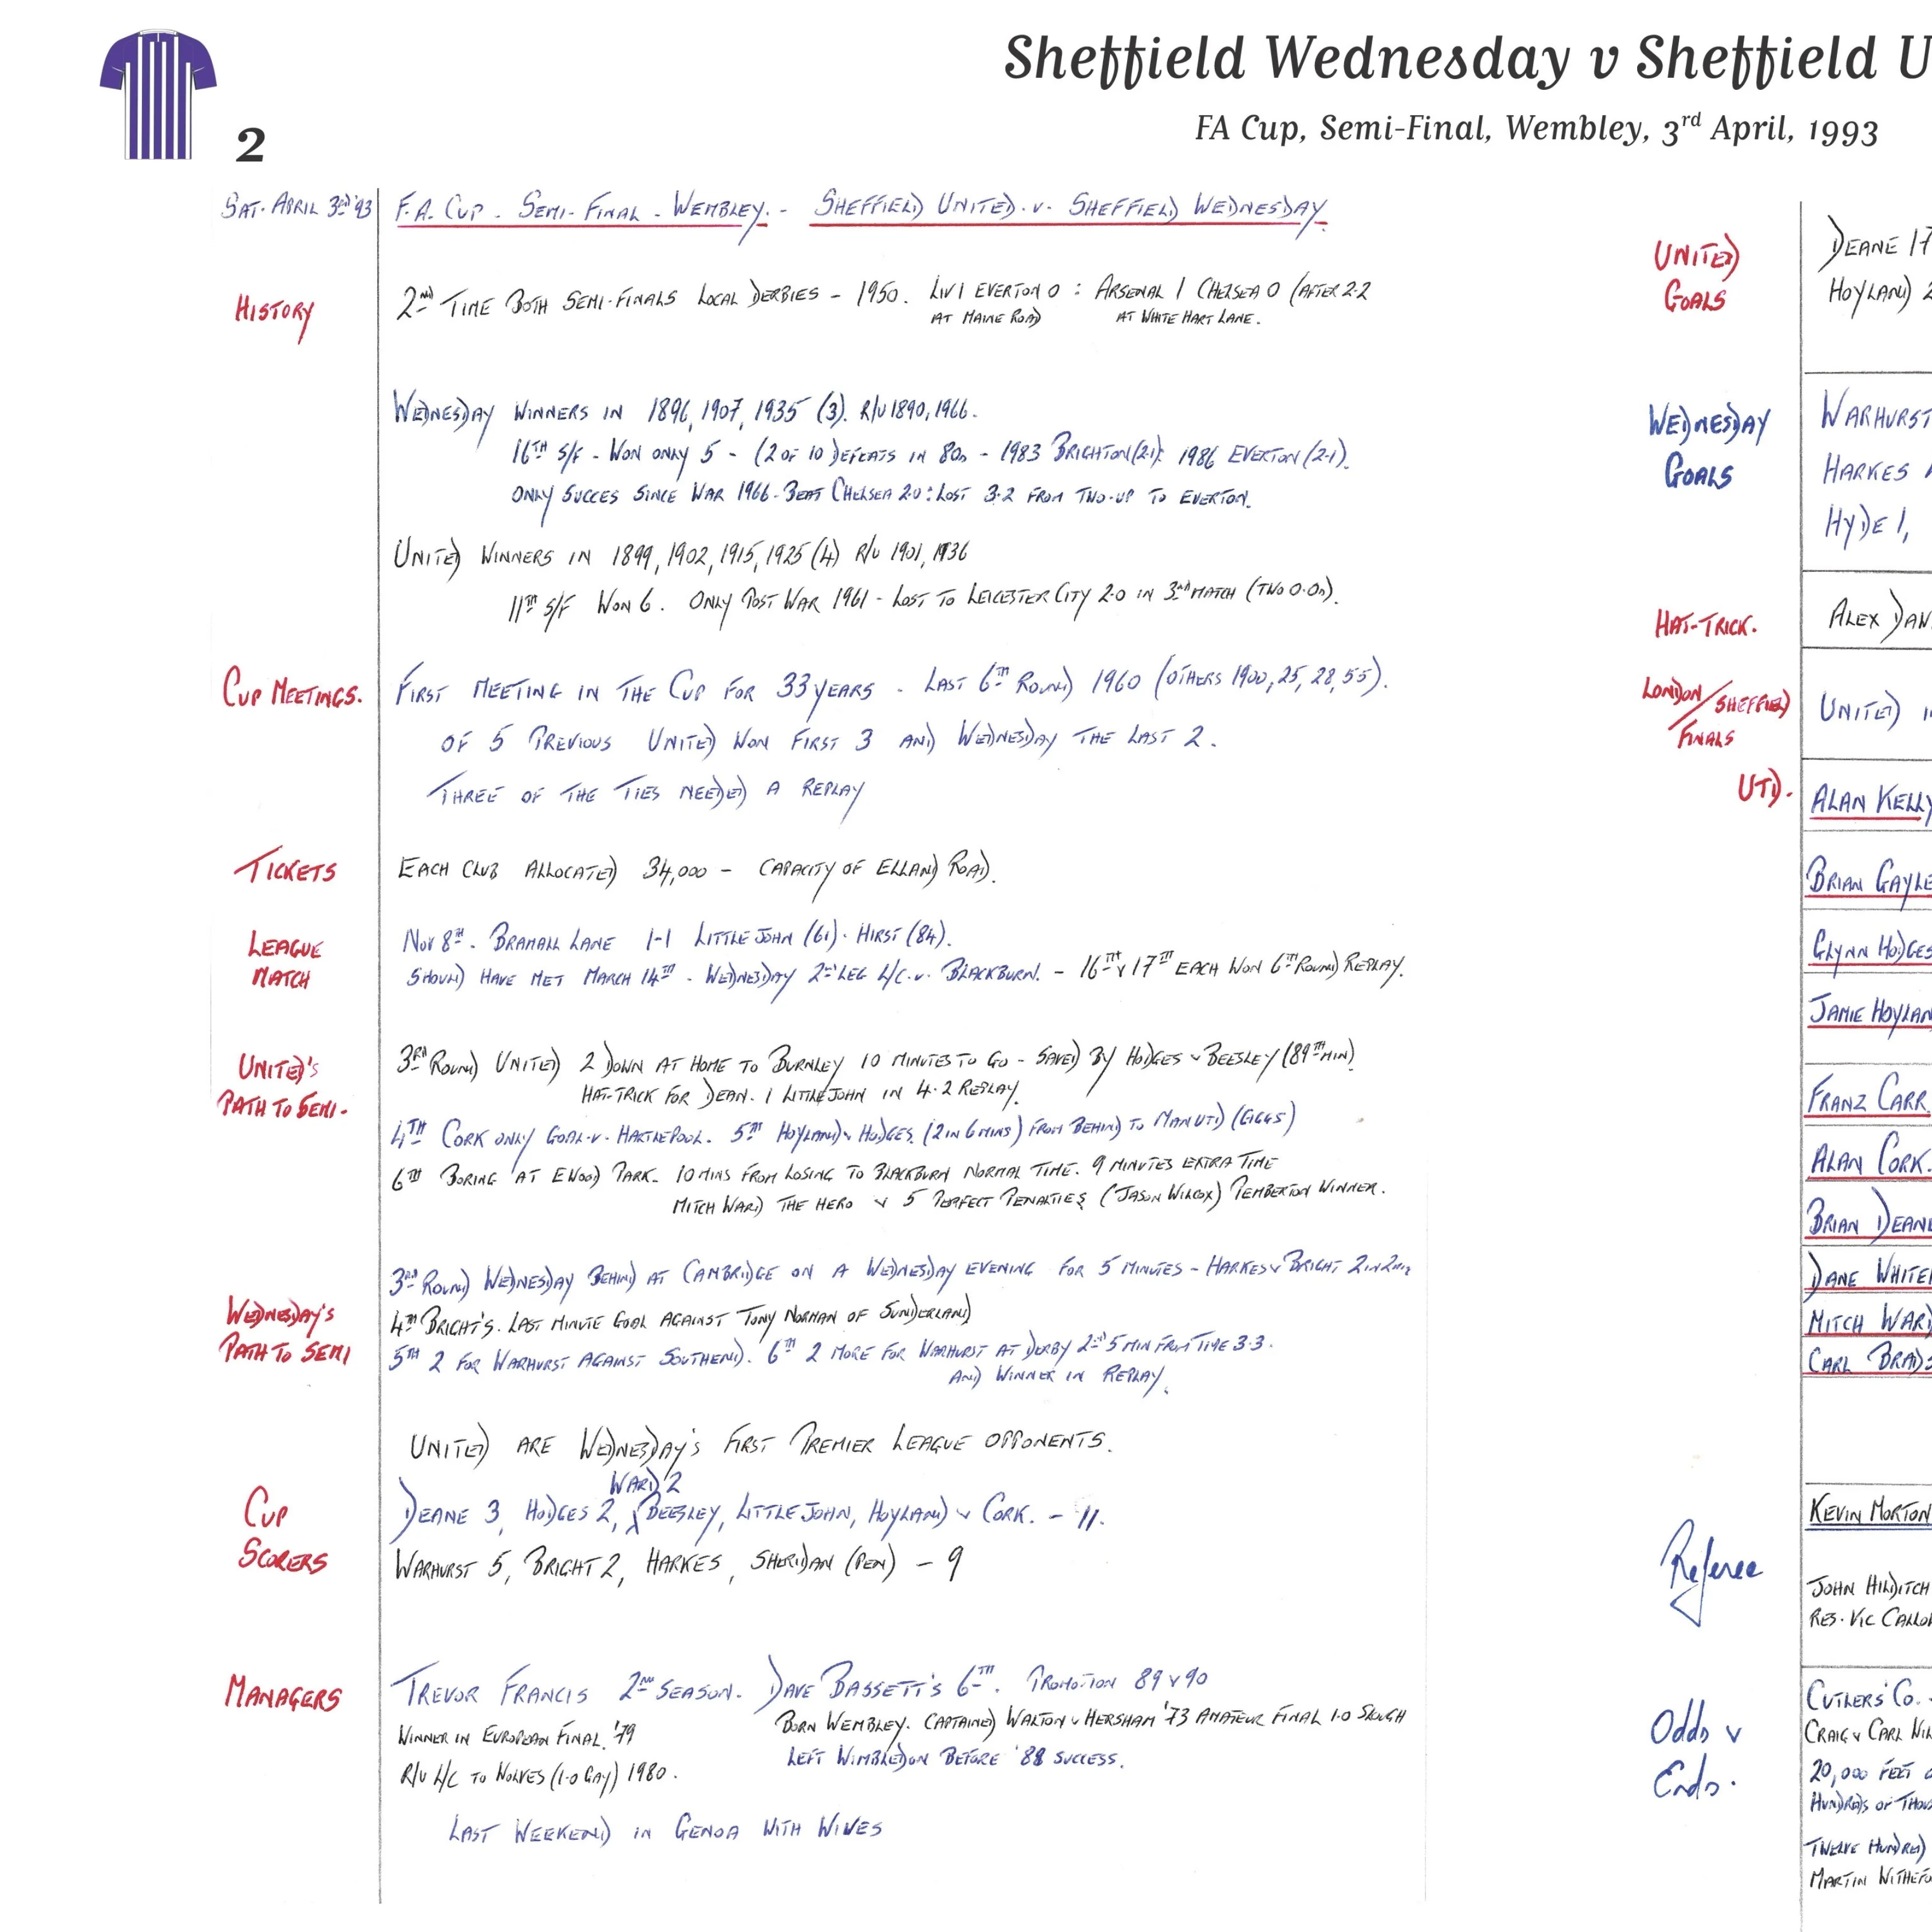 Sheffield Wednesday v Sheffield U
FA Cup, Semi-Final, Wembley, 3rd April, 1993
2
SAT. APRIL 3RD '93
F.A. CUP - SEMI-FINAL - WEMBLEY. - SHEFFIELD UNITED. v. SHEFFIELD WEDNESDAY.
HISTORY
2ND TIME BOTH SEMI-FINALS LOCAL DERBIES - 1950. LIV 1 EVERTON 0 : ARSENAL 1 CHELSEA 0 (AFTER 2.2
AT MAINE ROAD AT WHITE HART LANE.
WEDNESDAY WINNERS IN 1896, 1907, 1935 (3). R/U 1890, 1966.
16TH S/F - WON ONLY 5 - (2 OF 10 DEFEATS IN 80s - 1983 BRIGHTON (2.1): 1986 EVERTON (2-1).
ONLY SUCCES SINCE WAR 1966 - BEAT CHELSEA 2.0 : LOST 3.2 FROM TWO-UP TO EVERTON.
UNITED WINNERS IN 1899, 1902, 1915, 1925 (4) R/U 1901, 1936
11TH S/F WON 6. ONLY POST WAR 1961 - LOST TO LEICESTER CITY 2.0 IN 3RD MATCH (TWO 0.0s).
CUP MEETINGS.
FIRST MEETING IN THE CUP FOR 33 YEARS - LAST 6TH ROUND 1960 (OTHERS 1900, 25, 28, 55).
OF 5 PREVIOUS UNITED WON FIRST 3 AND WEDNESDAY THE LAST 2.
THREE OF THE TIES NEEDED A REPLAY
TICKETS
EACH CLUB ALLOCATED 34,000 - CAPACITY OF ELLAND ROAD.
LEAGUE
MATCH
NOV 8TH. BRAMALL LANE 1-1 LITTLEJOHN (61). HIRST (84).
SHOULD HAVE MET MARCH 14TH - WEDNESDAY 2ND LEG L/C. v. BLACKBURN. - 16TH v 17TH EACH WON 6TH ROUND REPLAY.
UNITED'S
PATH TO SEMI-
3RD ROUND UNITED 2 DOWN AT HOME TO BURNLEY 10 MINUTES TO GO - SAVED BY HODGES v BEESLEY (89TH MIN)
HAT-TRICK FOR DEAN. 1 LITTLEJOHN IN 4.2 REPLAY.
4TH CORK ONLY GOAL -v- HARTLEPOOL. 5TH HOYLAND v HODGES. (2 IN 6 MINS) FROM BEHIND TO MAN UTD (GIGGS)
6TH BORING AT EWOOD PARK. 10 MINS FROM LOSING TO BLACKBURN NORMAL TIME. 9 MINUTES EXTRA TIME
MITCH WARD THE HERO v 5 PERFECT PENALTIES (JASON WILCOX) PEMBERTON WINNER.
WEDNESDAY'S
PATH TO SEMI
3RD ROUND WEDNESDAY BEHIND AT CAMBRIDGE ON A WEDNESDAY EVENING FOR 5 MINUTES - HARKES v BRIGHT 2 IN 2
4TH BRIGHT'S. LAST MINUTE GOAL AGAINST TONY NORMAN OF SUNDERLAND
5TH 2 FOR WARHURST AGAINST SOUTHEND. 6TH 2 MORE FOR WARHURST AT DERBY 2ND 5 MIN FROM TIME 3.3.
AND WINNER IN REPLAY.
UNITED ARE WEDNESDAY'S FIRST PREMIER LEAGUE OPPONENTS.
CUP
SCORERS
WARD 2
DEANE 3, HODGES 2, BEESLEY, LITTLEJOHN, HOYLAND v CORK. - 11.
WARHURST 5, BRIGHT 2, HARKES, SHERIDAN (PEN) - 9
MANAGERS
TREVOR FRANCIS 2ND SEASON. DAVE BASSETT'S 6TH. PROMOTION 89 v 90
WINNER IN EUROPEAN FINAL. '79 BORN WEMBLEY. CAPTAINED WALTON v HERSHAM '73 AMATEUR FINAL 1.0 SLOUGH
R/U L/C TO WOLVES (1.0 GRAY) 1980. LEFT WIMBLEDON BEFORE '88 SUCCESS.
LAST WEEKEND IN GENOA WITH WIVES
UNITED
GOALS
DEANE 17
HOYLAND 2
WEDNESDAY
GOALS
WARHURST
HARKES
HYDE 1,
HAT-TRICK.
ALEX DAN
LONDON/SHEFFIELD
FINALS
UNITED
UTD.
ALAN KELLY
BRIAN GAYLE
GLYNN HODGES
JAMIE HOYLAN
FRANZ CARR
ALAN CORK.
BRIAN DEANE
DANE WHITE
MITCH WARD
CARL BRADS
Referee
KEVIN MORTON
JOHN HILDITCH
RES. VIC CALLO
Odds v
Ends.
CUTLERS' CO.
CRAIG v CARL
20,000 FEET
HUNDREDS OF THOU
TWELVE HUNDRED
MARTIN WITHEFO